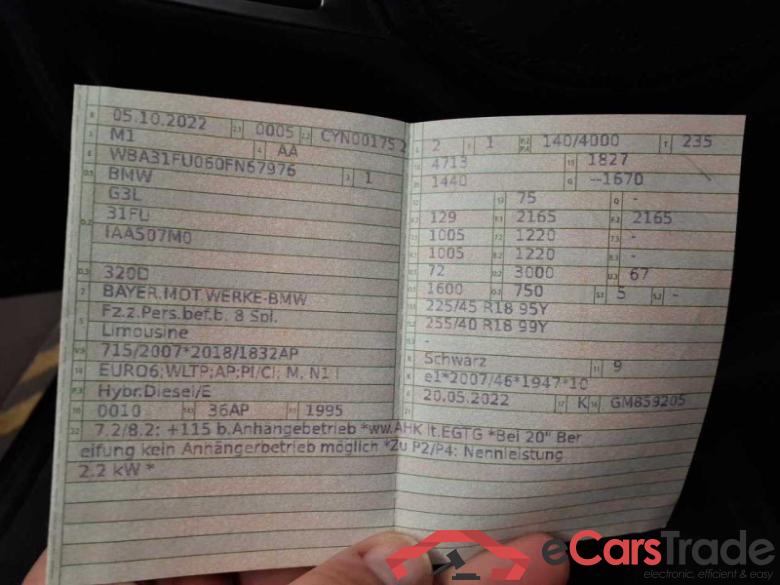 05.10.2022 0005 CYN00175 2
M1 AA
WBA31FU060FN67976 1
BMW
G3L
31FU
IAA507M0
320D
BAYER.MOT.WERKE-BMW
Fz.z.Pers.bef.b. 8 Spl.
Limousine
715/2007*2018/1832AP
EURO6;WLTP;AP;PI/CI; M, N1 I
Hybr.Diesel/E
0010 36AP 1995
2 1 140/4000 235
4713 1827
1440 --1670
75 -
129 2165 2165
1005 1220 -
1005 1220 -
72 3000 67
1600 750 5 -
225/45 R18 95Y
255/40 R18 99Y
-
Schwarz 9
e1*2007/46*1947*10
20.05.2022 K GM859205
7.2/8.2: +115 b.Anhängebetrieb *ww.AHK lt.EGTG *Bei 20" Ber
eifung kein Anhängerbetrieb möglich *Zu P2/P4: Nennleistung
2.2 kW *
eCarsTrade
electronic, efficient & easy